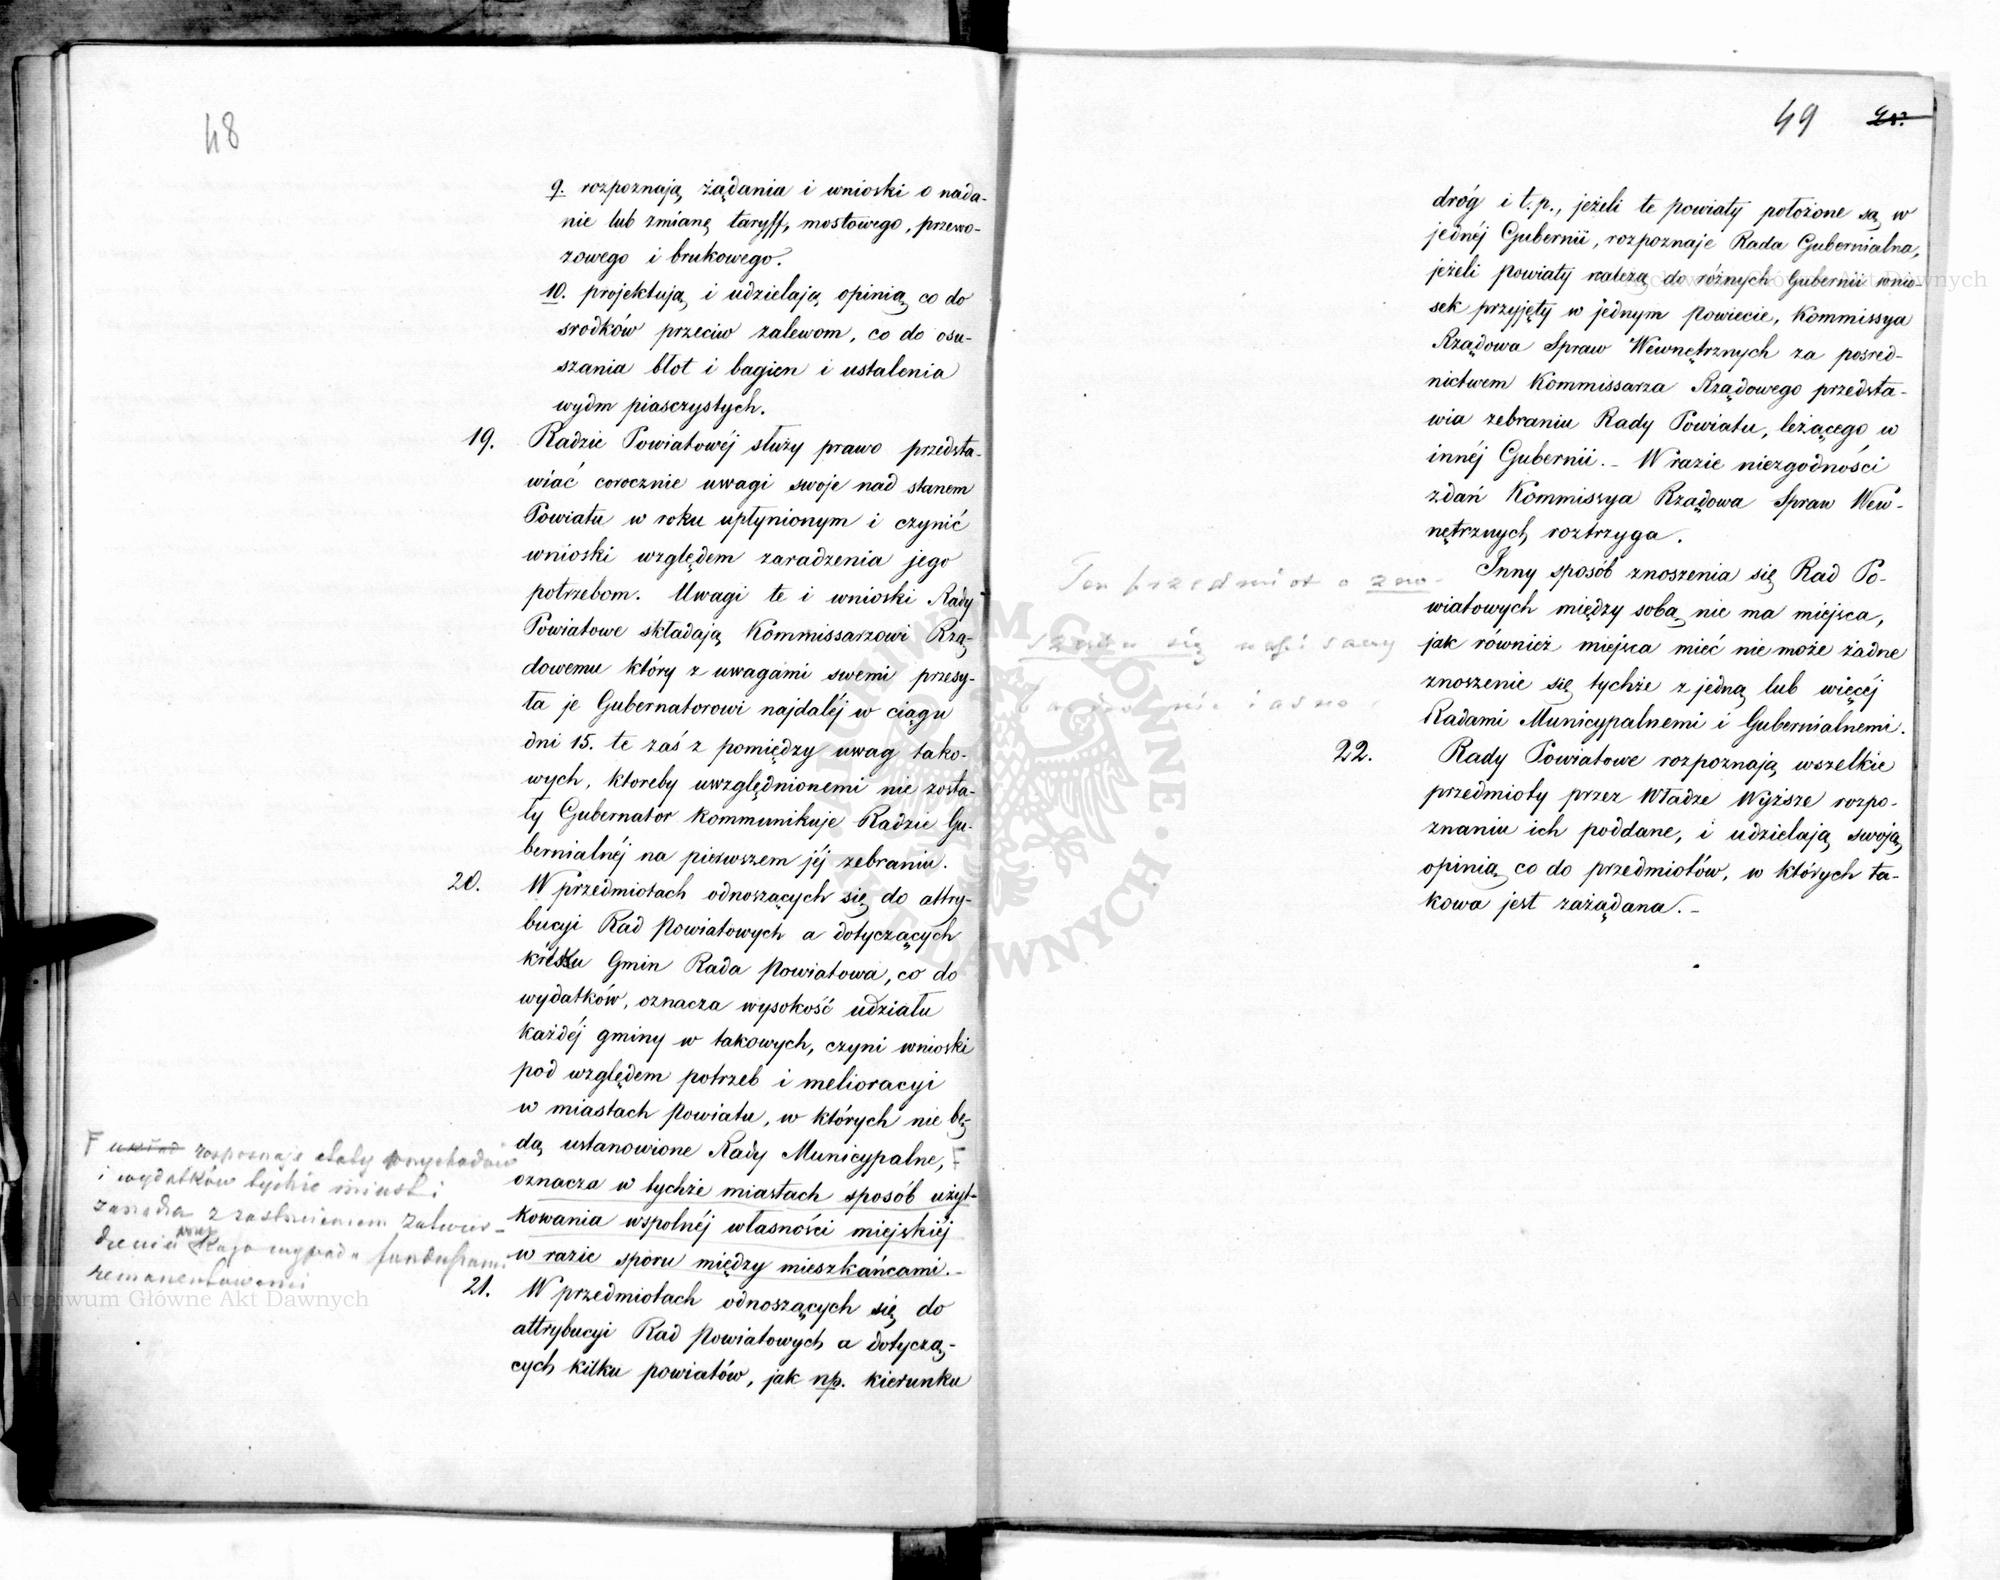 48
9. rozpoznają żądania i wnioski o nada-
nie lub zmianę taryff, mostowego, przewo-
zowego i brukowego.
10. projektują i udzielają opinią co do
srodków przeciw zalewom, co do osu-
szania błot i bagien i ustalenia
wydm piasczystych.
19. Radzie Powiatowéj służy prawo przedsta-
wiać corocznie uwagi swoje nad stanem
Powiatu w roku upłynionym i czynić
wnioski względem zaradzenia jego
potrzebom. Uwagi te i wnioski Rady
Powiatowe składają Kommissarzowi Rzą-
dowemu który z uwagami swemi przesy-
ła je Gubernatorowi najdaléj w ciągu
dni 15. te zaś z pomiędzy uwag tako-
wych, ktoreby uwzględnionemi nie zosta-
ły Gubernator kommunikuje Radzie Gu-
bernialnéj na pierwszem jéj zebraniu.
20. W przedmiotach odnoszących się do attry-
bucyi Rad Powiatowych a dotyczących
kilku Gmin Rada Powiatowa, co do
wydatków, oznacza wysokość udziału
każdéj gminy w takowych, czyni wnioski
pod względem potrzeb i melioracyi
w miastach Powiatu, w których nie bę-
dą ustanowione Rady Municypalne, F
oznacza w tychże miastach sposób użyt-
kowania wspolnéj własności miejskiéj
w razie sporu między mieszkańcami.-
F rozpoznaje etaty przychodów
i wydatków tychże miast i
zarządza z zastrzeżeniem zatwier-
dzenia
funduszami
remanentowemi
21. W przedmiotach odnoszących się do
attrybucyi Rad Powiatowych a dotyczą-
cych kilku powiatów, jak np. kierunku
49
dróg i t.p., jeżeli te powiaty położone są w
jednéj Gubernii, rozpoznaje Rada Gubernialna,
jeżeli powiaty należą do różnych Gubernii wnio-
sek przyjęty w jednym powiecie, Kommissya
Rządowa Spraw Wewnętrznych za pośred-
nictwem Kommissarza Rządowego przedsta-
wia zebraniu Rady Powiatu, leżącego w
innéj Gubernii.- W razie niezgodności
zdań Kommissya Rządowa Spraw Wew-
nętrznych roztrzyga.
Ten przedmiot o zno-
szeniu się
Inny sposób znoszenia się Rad Po-
wiatowych między sobą nie ma miejsca,
jak również miejsca mieć nie może żadne
znoszenie się tychże z jedną lub więcéj
Radami Municypalnemi i Gubernialnemi.
22. Rady Powiatowe rozpoznają wszelkie
przedmioty przez Władze Wyższe rozpo-
znaniu ich poddane, i udzielają swoją
opinią co do przedmiotów, w których ta-
kowa jest zażądana.-
Archiwum Główne Akt Dawnych
Archiwum Główne Akt Dawnych
ARCHIWUM GŁÓWNE AKT DAWNYCH